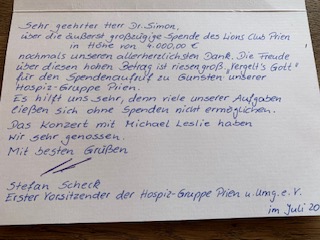 Sehr geehrter Herr Dr. Simon,
über die äußerst großzügige Spende des Lions Club Prien
in Höhe von 4.000,00 €
nochmals unseren allerherzlichsten Dank. Die Freude
über diesen hohen Betrag ist riesengroß. "Vergelt's Gott"
für den Spendenaufruf zu Gunsten unserer
Hospiz-Gruppe Prien.
Es hilft uns sehr, denn viele unserer Aufgaben
ließen sich ohne Spenden nicht ermöglichen.
Das Konzert mit Michael Leslie haben
wir sehr genossen.
Mit besten Grüßen
Stefan Scheck
Erster Vorsitzender der Hospiz-Gruppe Prien u. Umg. e.V.
im Juli 20